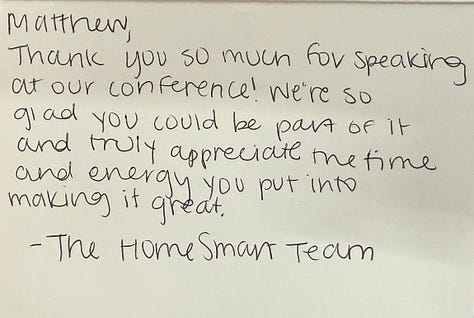 Matthew,
Thank you so much for speaking
at our conference! We're so
glad you could be part of it
and truly appreciate the time
and energy you put into
making it great.
- The HomeSmart Team